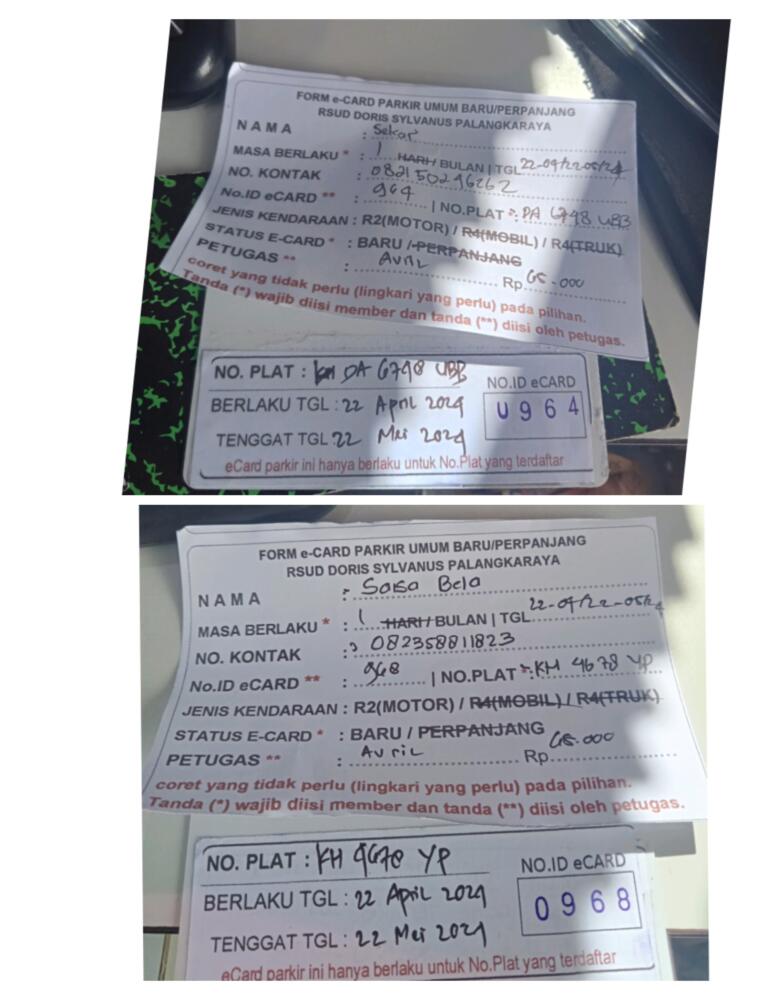 FORM e-CARD PARKIR UMUM BARU/PERPANJANG
RSUD DORIS SYLVANUS PALANGKARAYA
NAMA : Sekar
MASA BERLAKU * : 1 HARI / BULAN | TGL 22-04/22-05/24
NO. KONTAK : 082150296262
No.ID eCARD ** : 964 | NO.PLAT *: DA 6798 UBB
JENIS KENDARAAN : R2(MOTOR) / R4(MOBIL) / R4(TRUK)
STATUS E-CARD * : BARU / PERPANJANG
PETUGAS ** : Avril Rp. 65.000
coret yang tidak perlu (lingkari yang perlu) pada pilihan.
Tanda (*) wajib diisi member dan tanda (**) diisi oleh petugas.
NO. PLAT : DA 6798 UBB
NO.ID eCARD
BERLAKU TGL : 22 April 2024
0964
TENGGAT TGL : 22 Mei 2024
eCard parkir ini hanya berlaku untuk No.Plat yang terdaftar
FORM e-CARD PARKIR UMUM BARU/PERPANJANG
RSUD DORIS SYLVANUS PALANGKARAYA
NAMA : Salsa Bela
MASA BERLAKU * : 1 HARI / BULAN | TGL 22-04/22-05/24
NO. KONTAK : 082358811823
No.ID eCARD ** : 968 | NO.PLAT *: KH 4678 YP
JENIS KENDARAAN : R2(MOTOR) / R4(MOBIL) / R4(TRUK)
STATUS E-CARD * : BARU / PERPANJANG
PETUGAS ** : Avril Rp. 65.000
coret yang tidak perlu (lingkari yang perlu) pada pilihan.
Tanda (*) wajib diisi member dan tanda (**) diisi oleh petugas.
NO. PLAT : KH 4678 YP
NO.ID eCARD
BERLAKU TGL : 22 April 2024
0968
TENGGAT TGL : 22 Mei 2024
eCard parkir ini hanya berlaku untuk No.Plat yang terdaftar